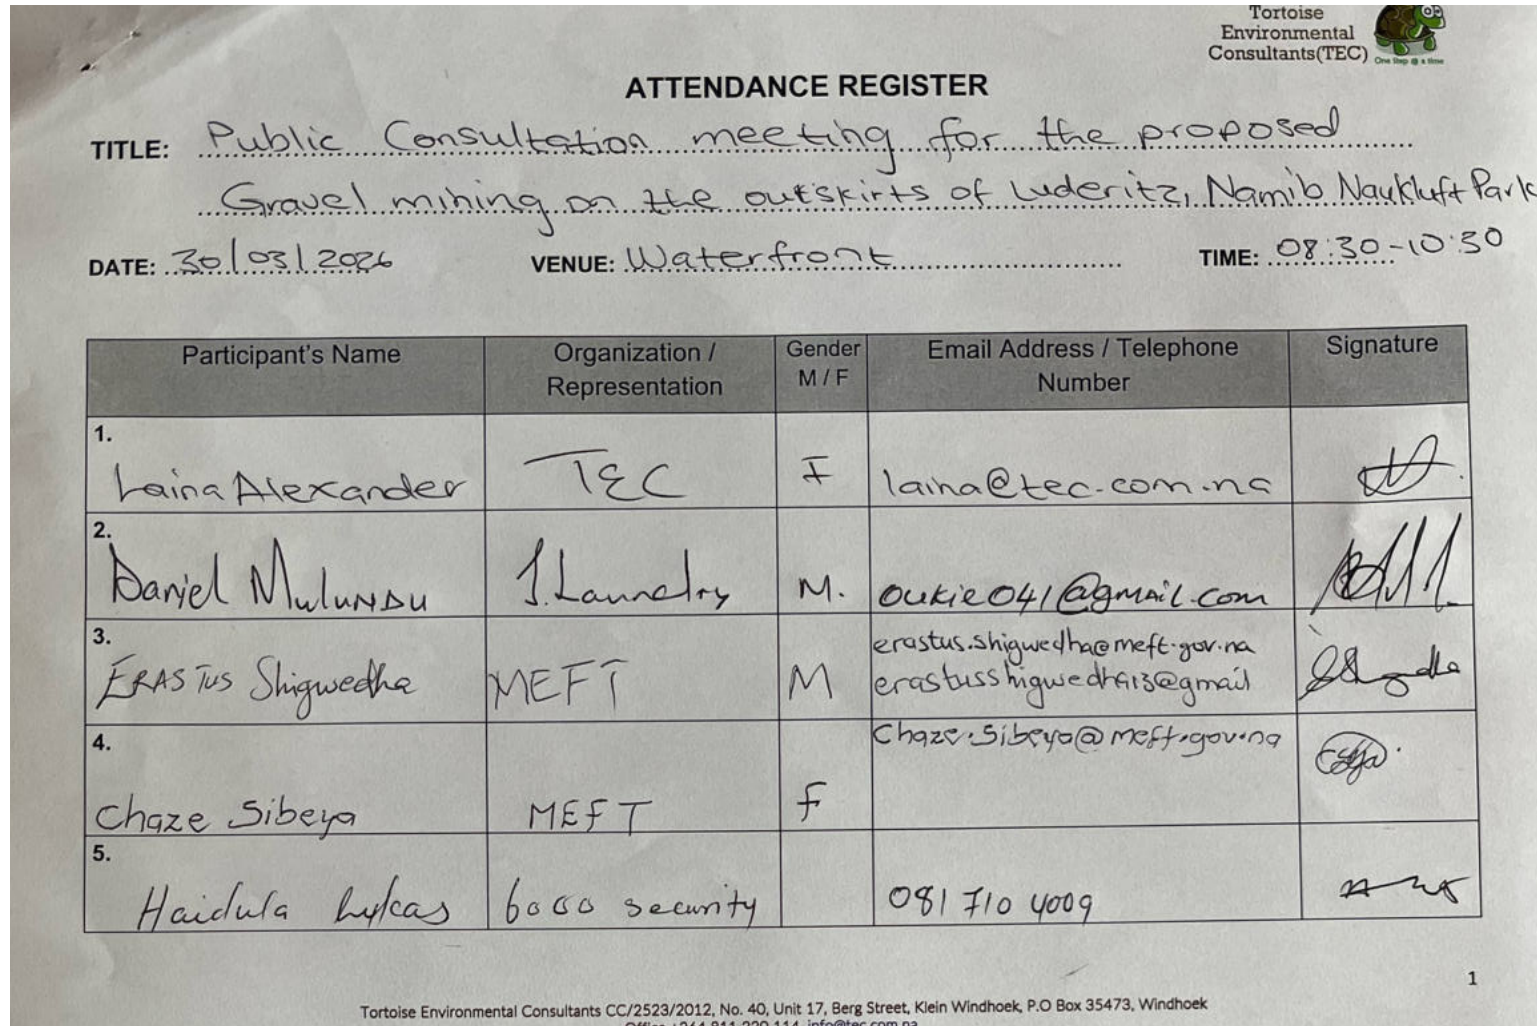 Tortoise
Environmental
Consultants(TEC)
One Step @ a time
ATTENDANCE REGISTER
TITLE: Public Consultation meeting for the proposed
Gravel mining on the outskirts of Luderitz, Namib Naukluft Park
DATE: 30/03/2026 VENUE: Waterfront TIME: 08:30-10:30
Participant's Name Organization / Representation Gender M / F Email Address / Telephone Number Signature
1. Laina Alexander TEC F laina@tec.com.na
2. Daniel Mulundu J. Laundry M. oukie041@gmail.com
3. ERASTUS Shigwedha MEFT M erastus.shigwedha@meft.gov.na
erastusshigwedha13@gmail
4. Chaze Sibeya MEFT F Chaze.Sibeya@meft.gov.na
5. Haidula Lukas 6000 security 081 710 4009
1
Tortoise Environmental Consultants CC/2523/2012, No. 40, Unit 17, Berg Street, Klein Windhoek, P.O Box 35473, Windhoek